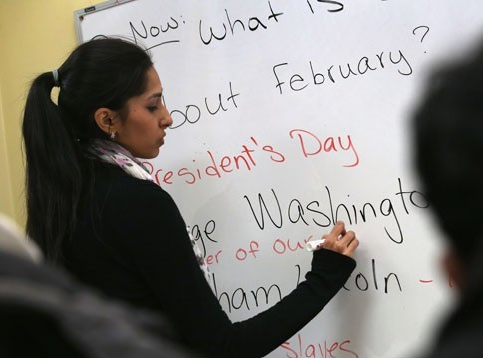 Now: What is
about February?
President's Day
ge Washingto
er of Our
ham Lincoln -
slaves